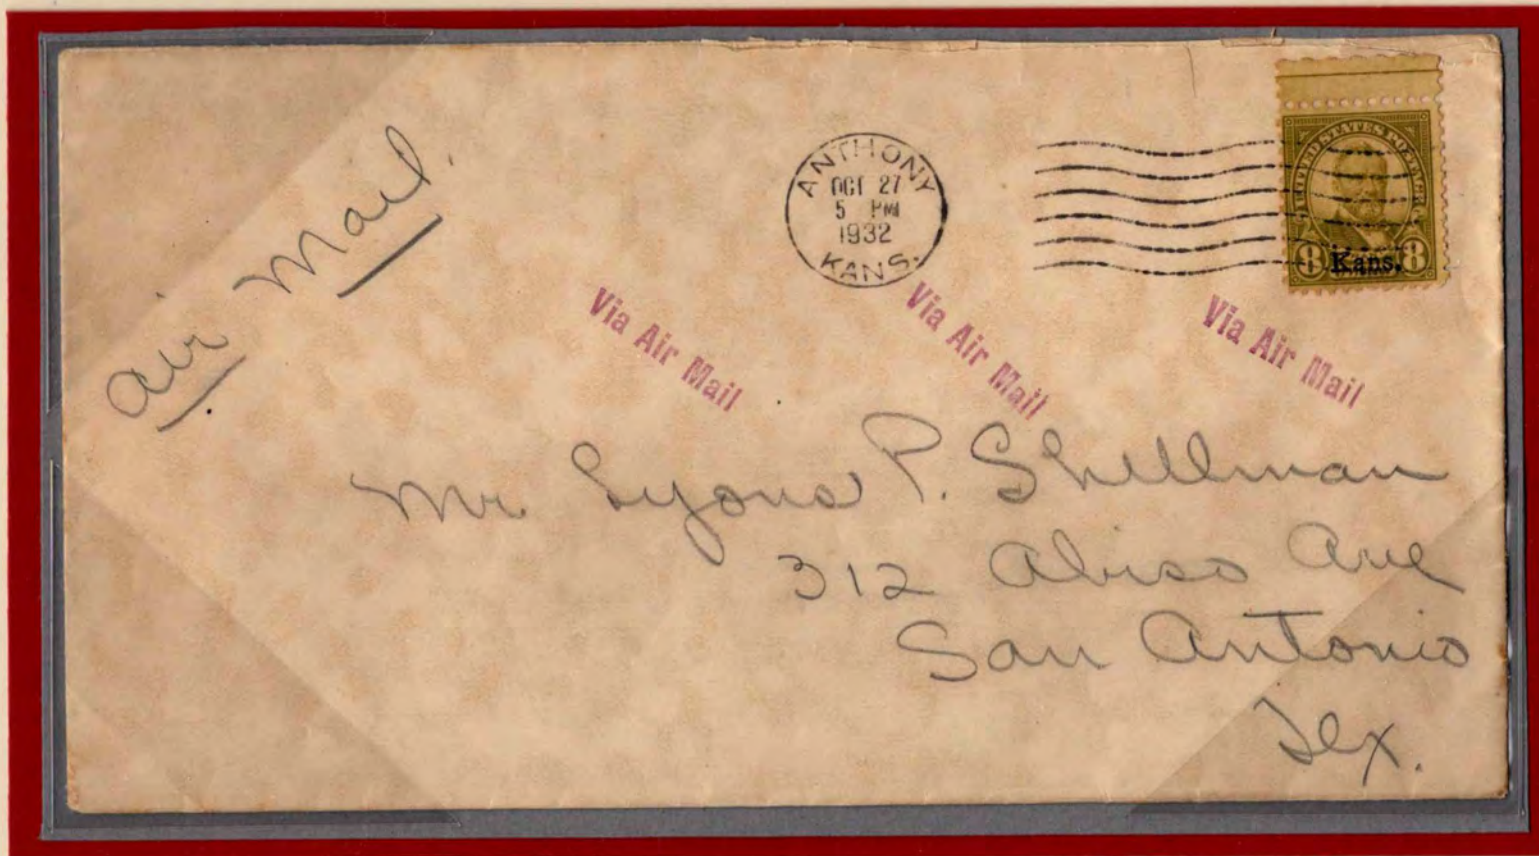 Air Mail.
ANTHONY
OCT 27
5 PM
1932
KANS.
UNITED STATES POSTAGE
8 Kans. 8
Via Air Mail Via Air Mail Via Air Mail
Mr Lyons P. Shellman
312 Abiso Ave
San Antonio
Tex.